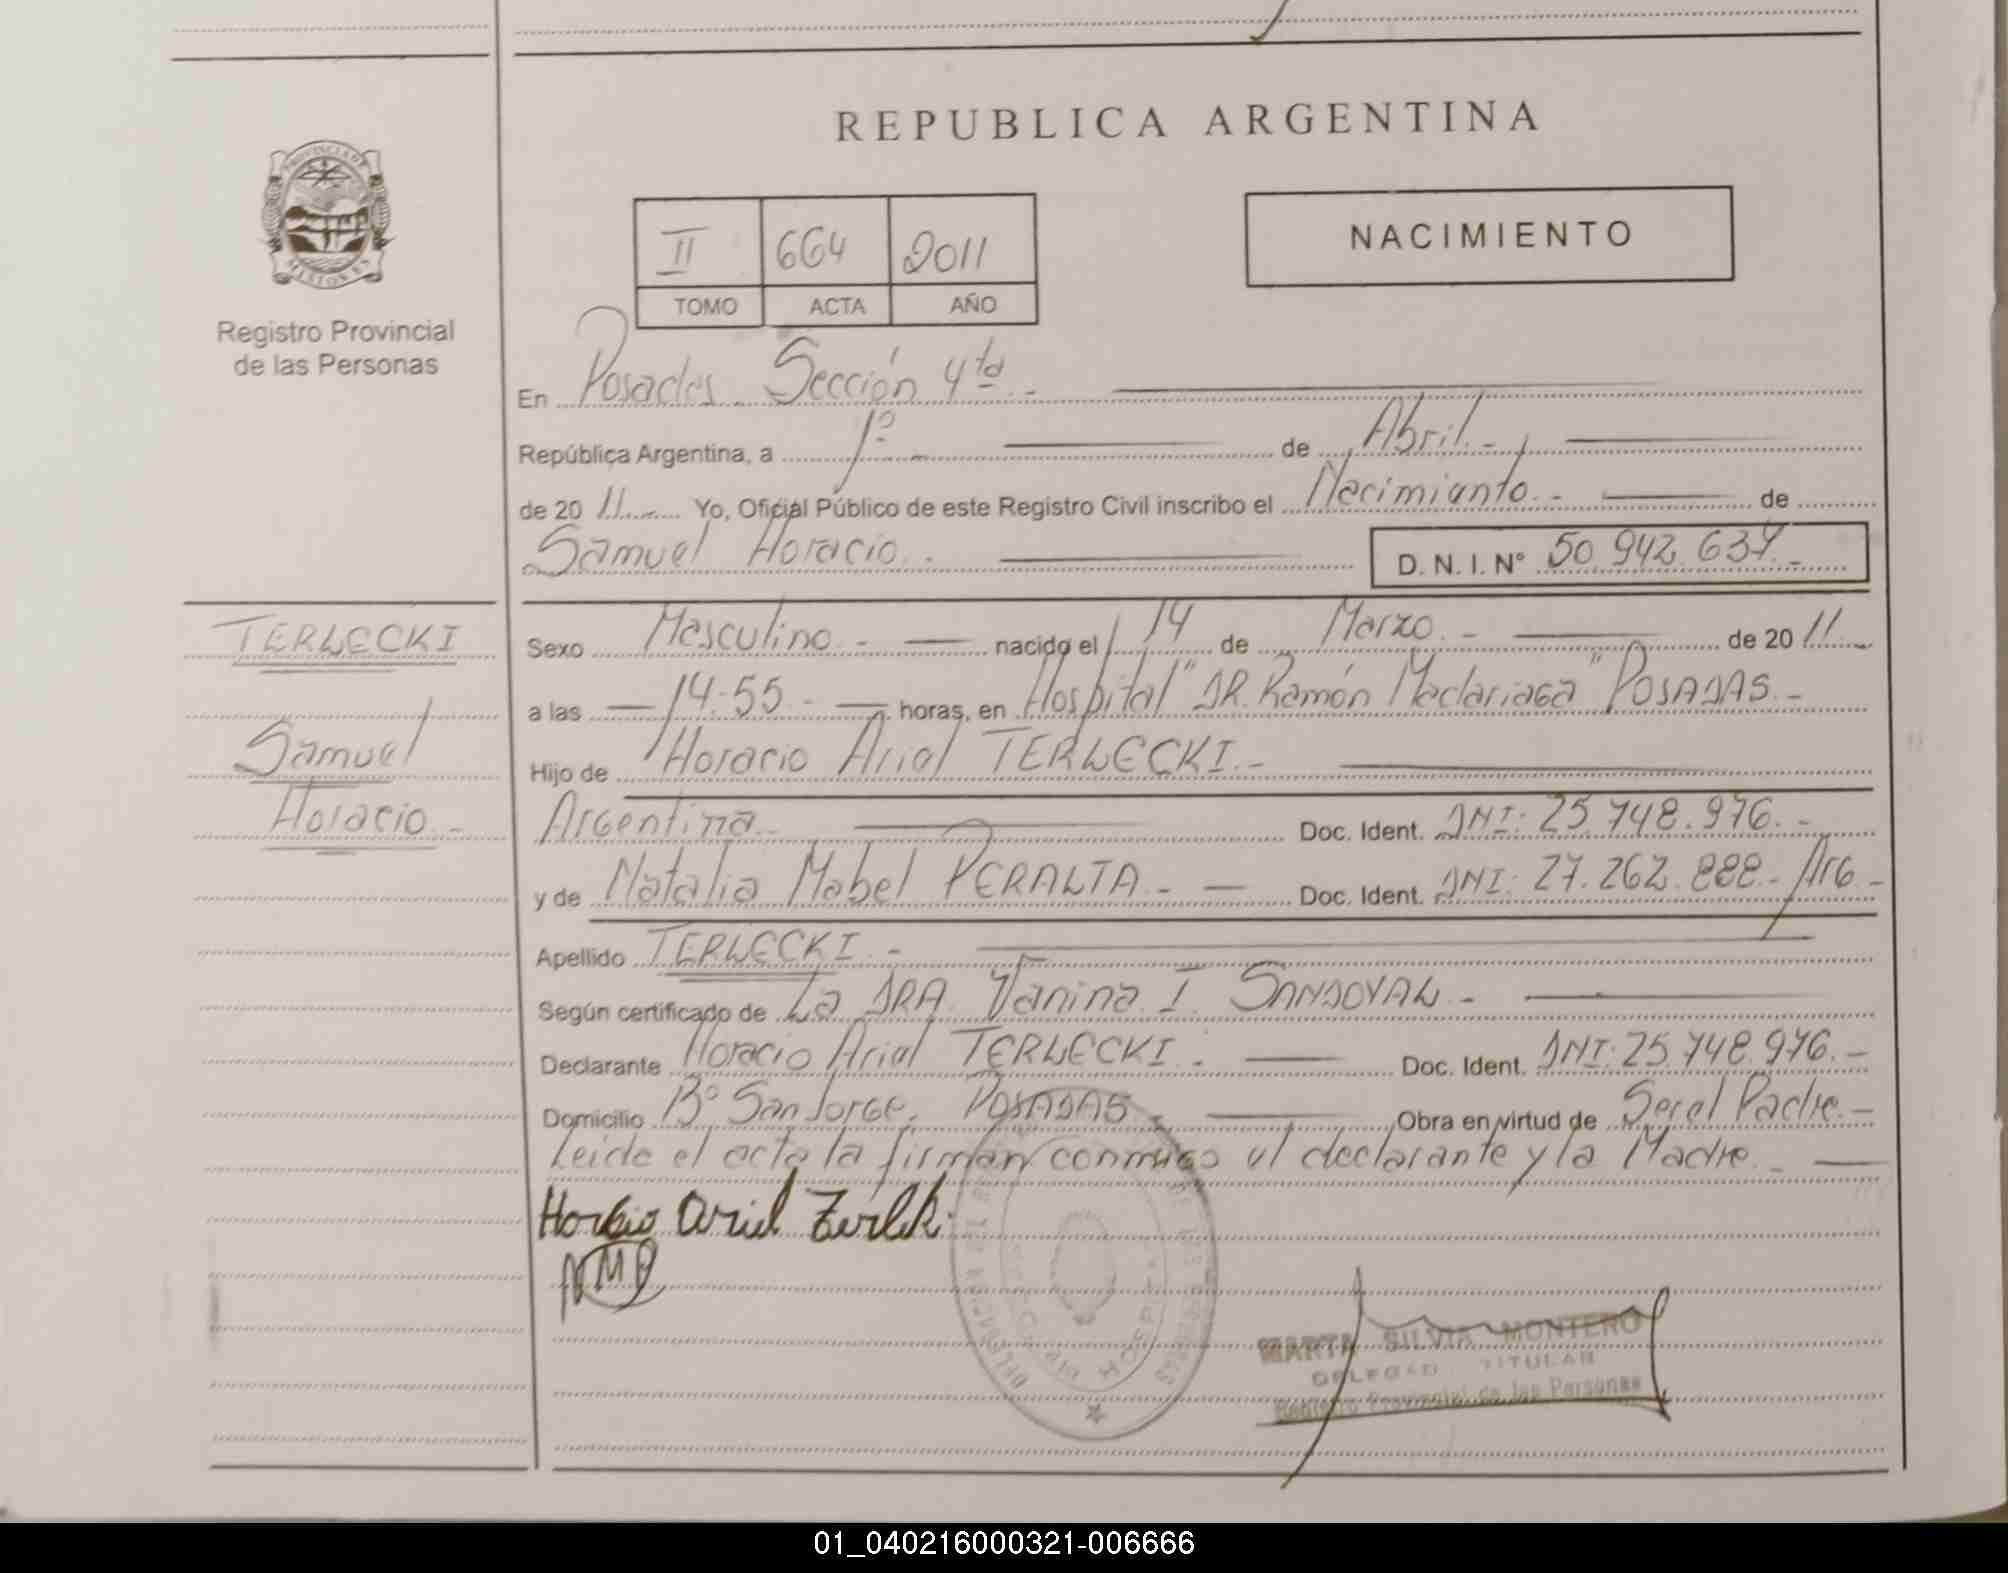 REPUBLICA ARGENTINA
PROVINCIA DE
MISIONES
Registro Provincial
de las Personas
II 664 2011
TOMO ACTA AÑO
NACIMIENTO
En Posadas Sección 4ta -
República Argentina, a 1º - de Abril -
de 20 11 Yo, Oficial Público de este Registro Civil inscribo el Nacimiento - de
Samuel Horacio - D. N. I. Nº 50.942.637 -
TERLECKI
Samuel
Horacio -
Sexo Masculino - nacido el 14 de Marzo - de 20 11
a las 14:55 - horas, en Hospital "DR. Ramón Madariaga" POSADAS -
Hijo de Horacio Ariel TERLECKI -
Argentina - Doc. Ident. DNI: 25.748.976. -
y de Natalia Mabel PERALTA - Doc. Ident. DNI: 27.262.888 - Arg -
Apellido TERLECKI -
Según certificado de La DRA. Vanina I. SANDOVAL -
Declarante Horacio Ariel TERLECKI - Doc. Ident. DNI: 25.748.976. -
Domicilio Bº San Jorge, POSADAS - Obra en virtud de Ser el Padre -
Leida el acta la firman conmigo el declarante y la Madre -
Horacio Ariel Terlecki
NMP
MARTA SILVIA MONTERO
DELEGADA TITULAR
Registro Provincial de las Personas
01_040216000321-006666